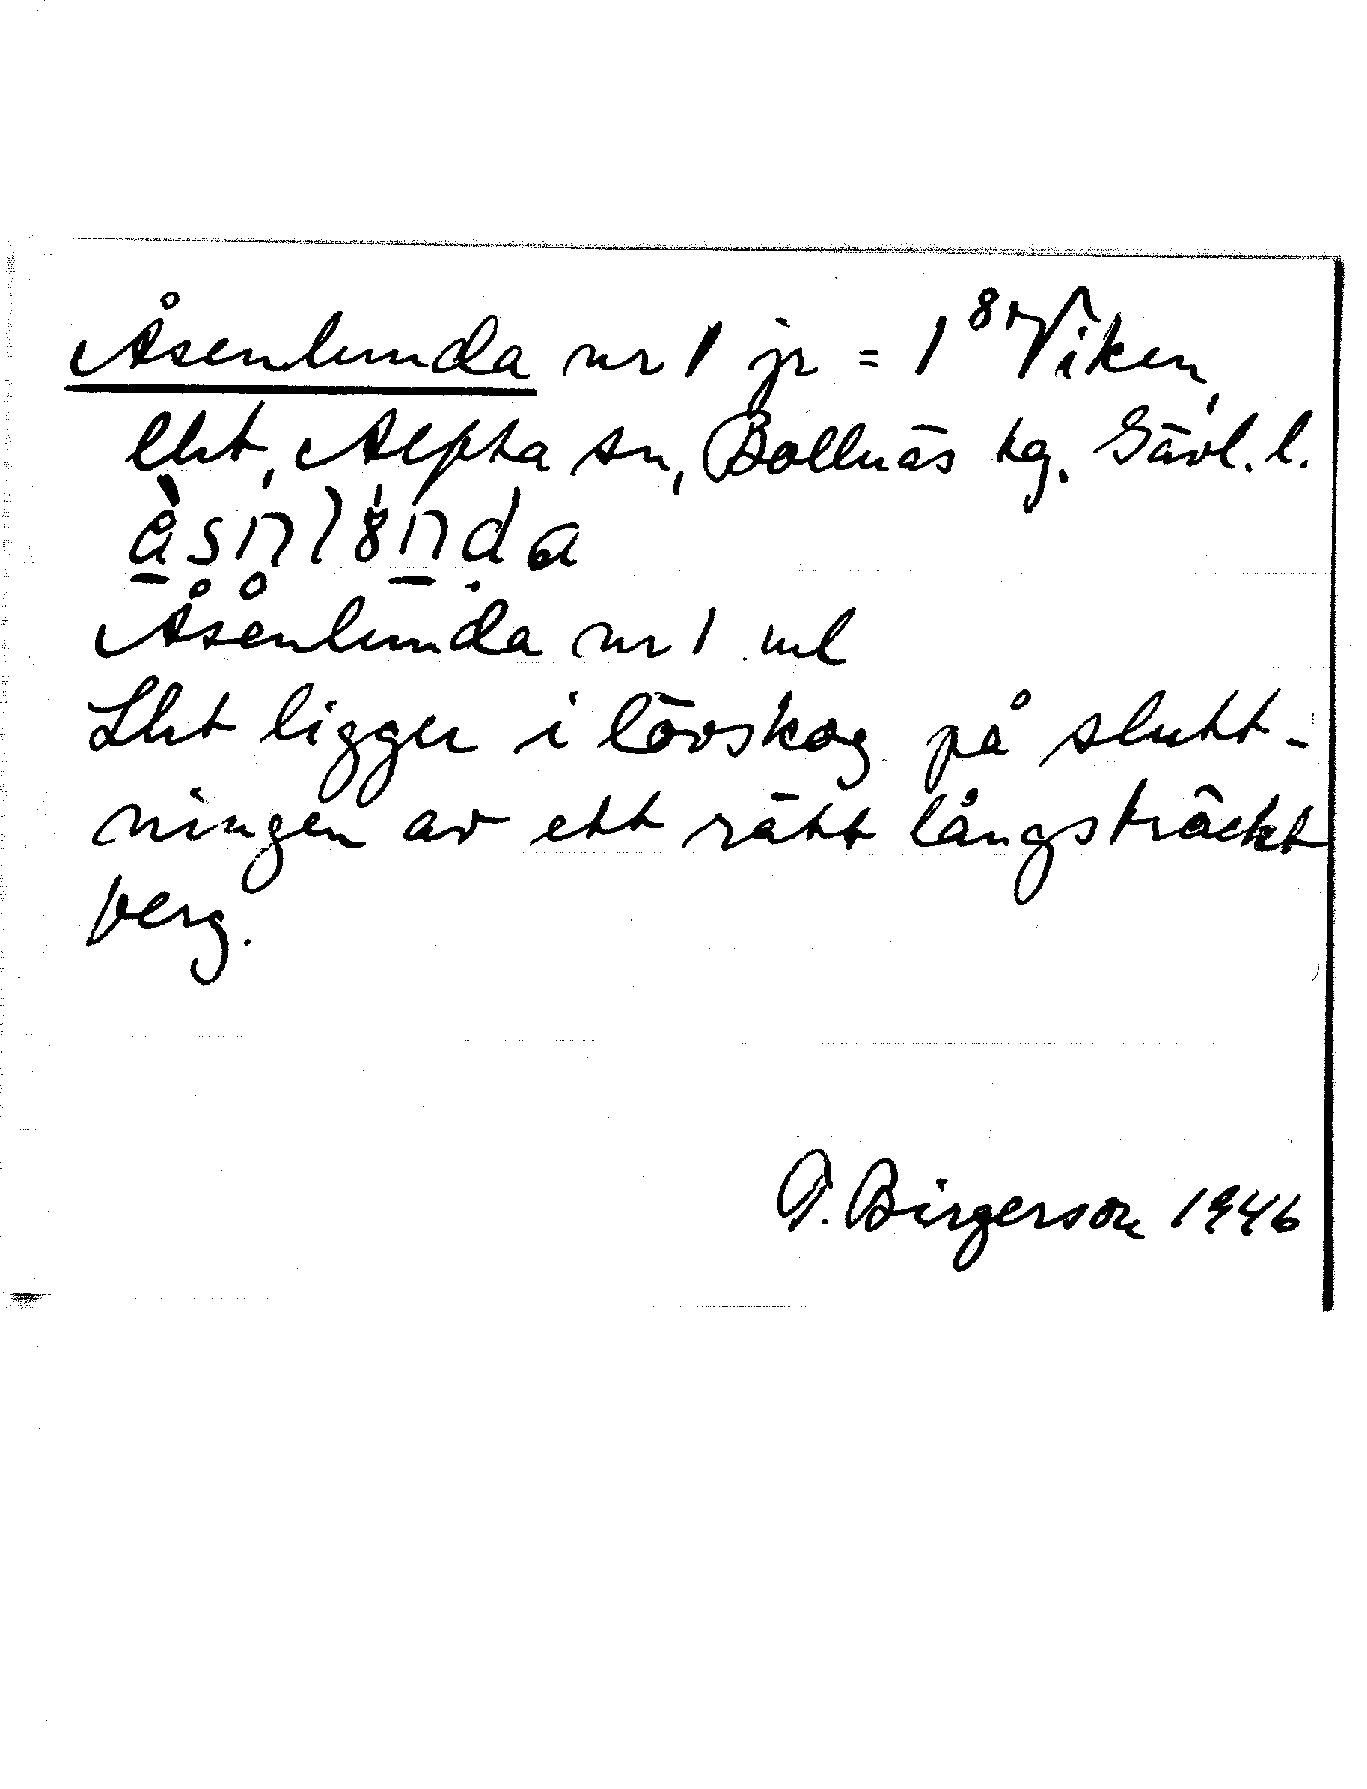 Åsenlunda nr 1 jr = 1⁸ Viken,
lht, Alpha sn, Bollnäs tg. Gävl. l.
Åsenlunda nr 1 ml
Lht ligger i lövskog på slutt-
ningen av ett rätt långsträckt
berg.
Birgerson 1946